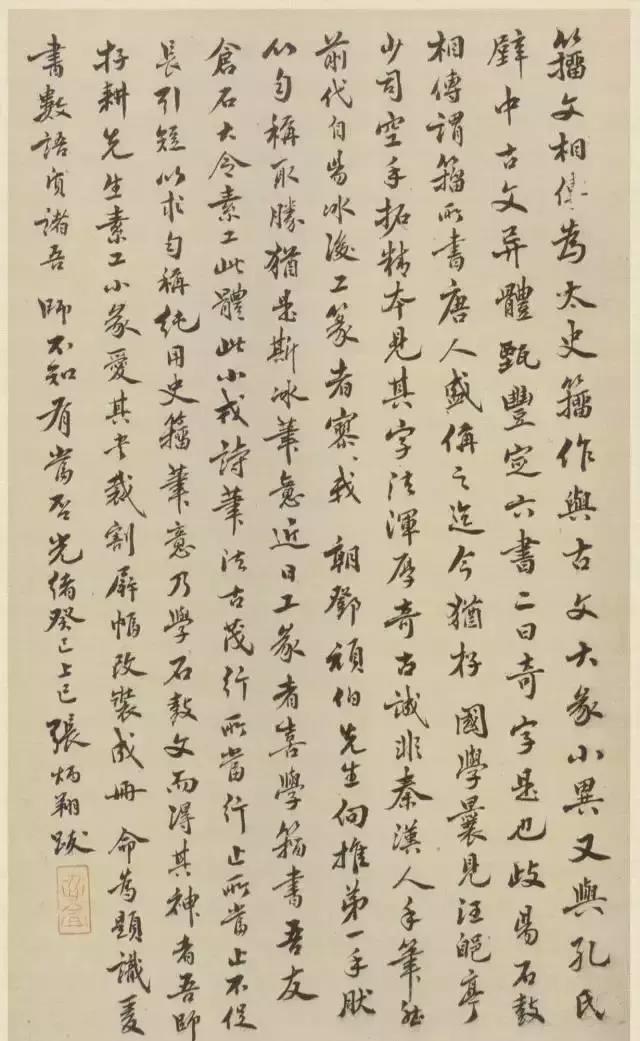 籀文相傳為太史籀作與古文大篆小異又與孔氏
壁中古文异體甄豐定六書二曰奇字是也歧陽石鼓
相傳謂籀所書唐人盛偁之迄今猶存國學曩見汪郋亭
少司空手拓精本見其字法渾厚奇古誠非秦漢人手筆能
前代自陽冰後工篆者寥〻我朝鄧頑伯先生向推第一手肰
以勻稱取勝猶是斯冰筆意近日工篆者喜學籀書吾友
倉石大令素工此體此小戎詩筆法古茂行所當行止所當止不促
長引短以求勻稱純用史籀筆意乃學石鼓文而得其神者吾師
存耕先生素工小篆愛其書裁割屏幅改裝成冊命為題識爰
書數語質諸吾師不知有當否光緒癸巳上巳張炳翔跋